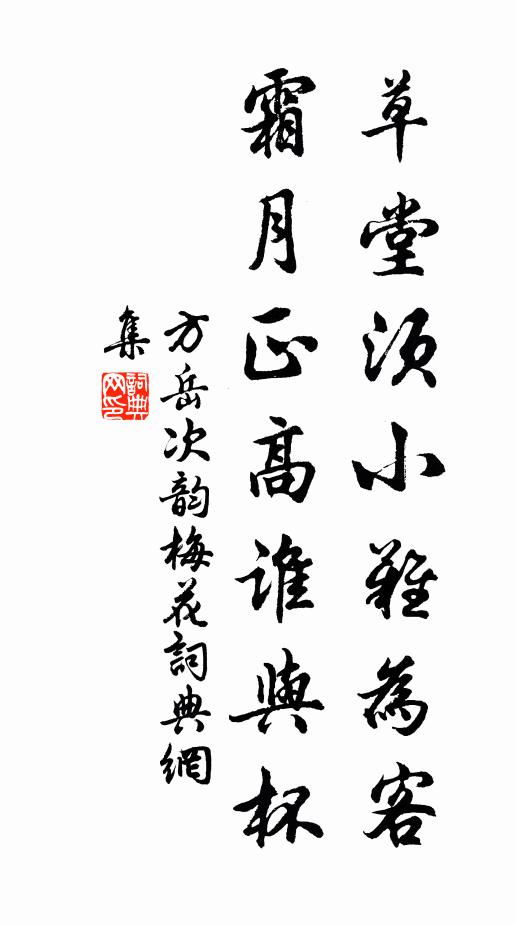 草堂須小難為客
霜月正高誰與杯
方岳次韵梅花詞典網
集
詞典
网印